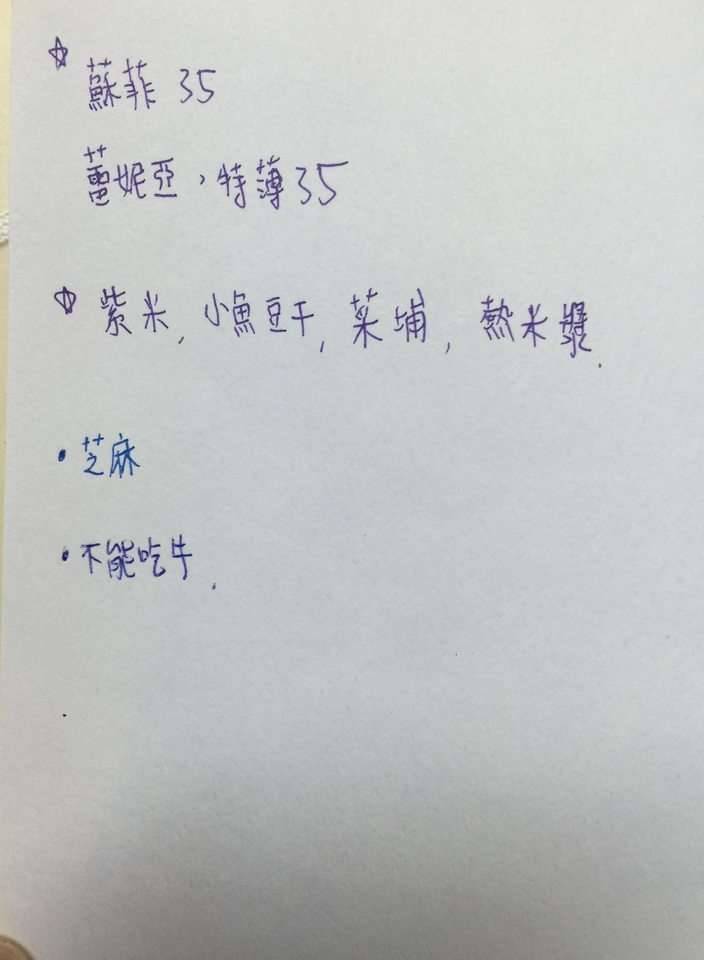 ☆ 蘇菲 35
蕾妮亞，特薄35
☆ 紫米, 小魚豆干, 菜埔, 熱米漿.
• 芝麻
• 不能吃牛.